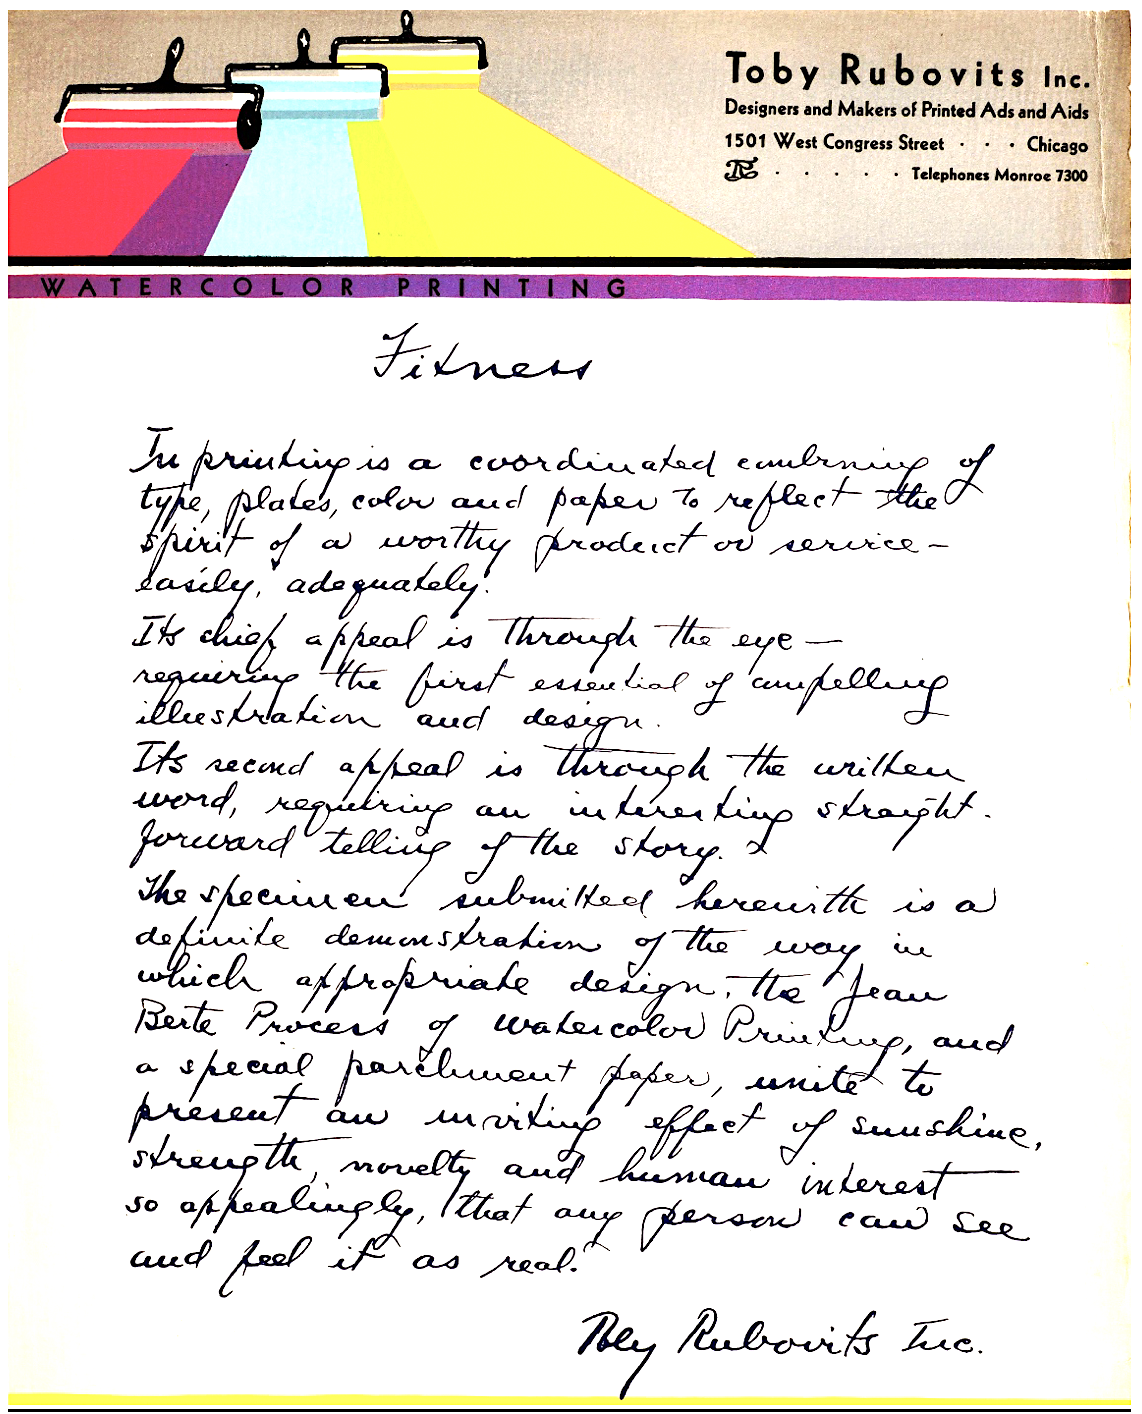 Toby Rubovits Inc.
Designers and Makers of Printed Ads and Aids
1501 West Congress Street · · · Chicago
TR · · · · · · Telephones Monroe 7300
WATERCOLOR PRINTING
Fitness
In printing is a coordinated combining of
type, plates, color and paper to reflect the
spirit of a worthy product or service –
easily, adequately.
Its chief appeal is through the eye –
requiring the first essential of compelling
illustration and design.
Its second appeal is through the written
word, requiring an interesting straight-
forward telling of the story.
The specimen submitted herewith is a
definite demonstration of the way in
which appropriate design, the Jean
Berte Process of Watercolor Printing, and
a special parchment paper, unite to
present an inviting effect of sunshine,
strength, novelty and human interest
so appealingly, that any person can see
and feel it as real.
Toby Rubovits Inc.